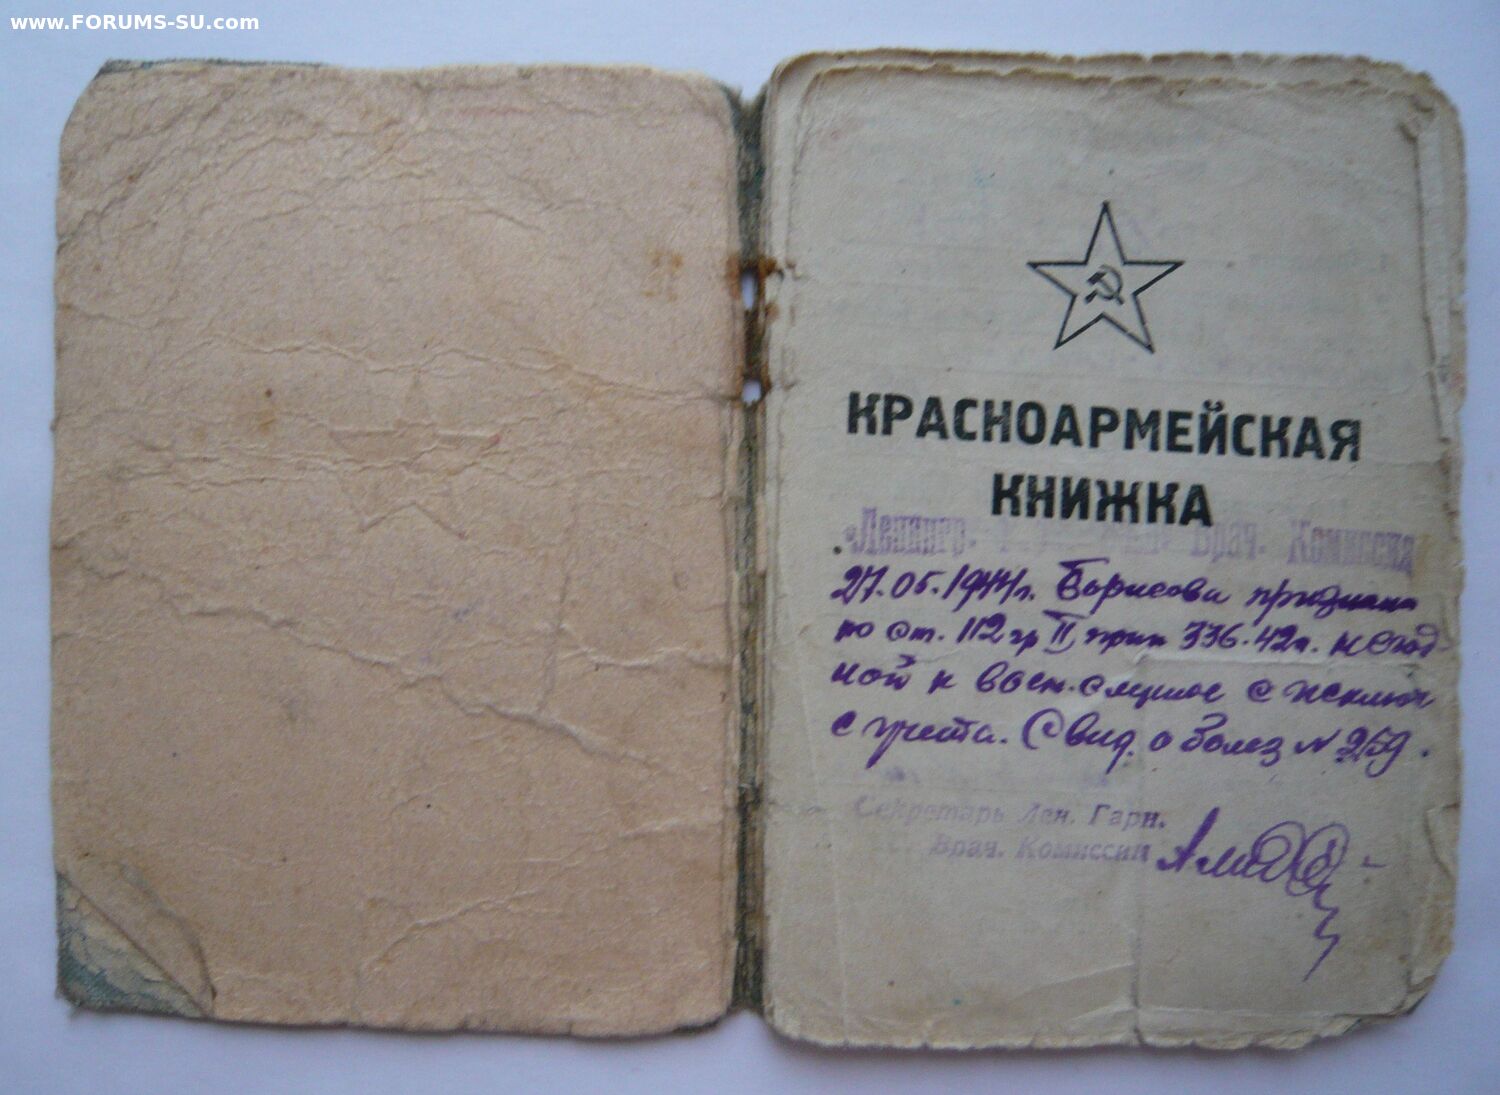 www.FORUMS-SU.com
КРАСНОАРМЕЙСКАЯ
КНИЖКА
Ленингр. Врач. Комиссия
27.05.1944г. Борисова признана
по ст. 112 гр II прик 336-42г. негод-
ной к воен. службе с исключ
с учета. Свид. о болез № 259.
Секретарь Лен. Гарн.
Врач. Комиссии